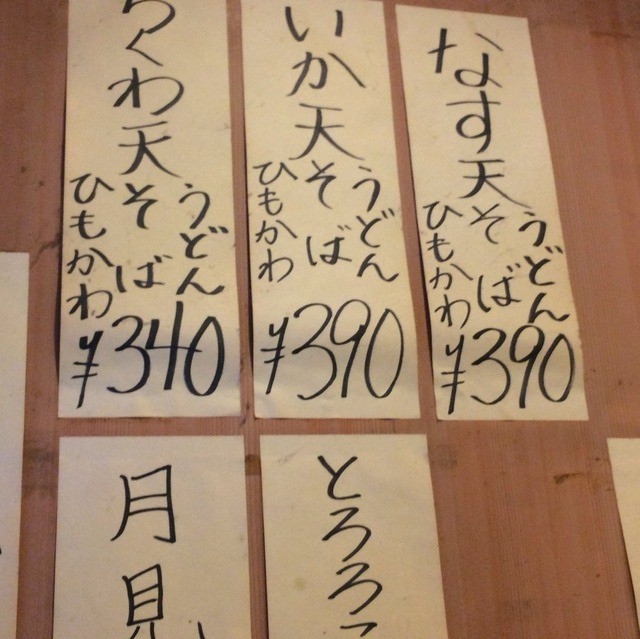 なす天
うどん
そば
ひもかわ
¥390
いか天
うどん
そば
ひもかわ
¥390
ちくわ天
うどん
そば
ひもかわ
¥340
とろろ
月見